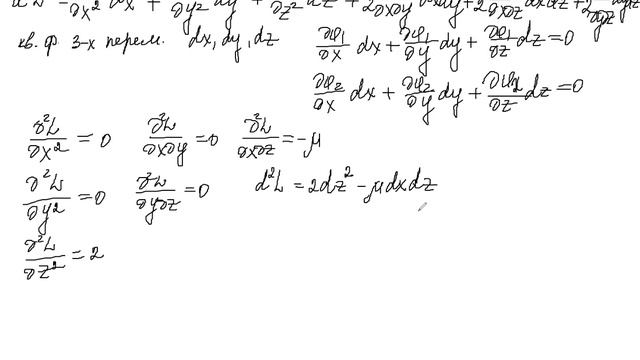 d²L = ∂x² dx + ∂y² dy + ∂z² dz + 2 ∂x∂y dxdy + 2 ∂x∂z dxdz + 2 ∂y∂z dydz
кв. ф. 3-х перем. dx, dy, dz ∂φ₁/∂x dx + ∂φ₁/∂y dy + ∂φ₁/∂z dz = 0
∂φ₂/∂x dx + ∂φ₂/∂y dy + ∂φ₂/∂z dz = 0
∂²L/∂x² = 0 ∂²L/∂x∂y = 0 ∂²L/∂x∂z = -μ
∂²L/∂y² = 0 ∂²L/∂y∂z = 0 d²L = 2dz² - μdxdz
∂²L/∂z² = 2